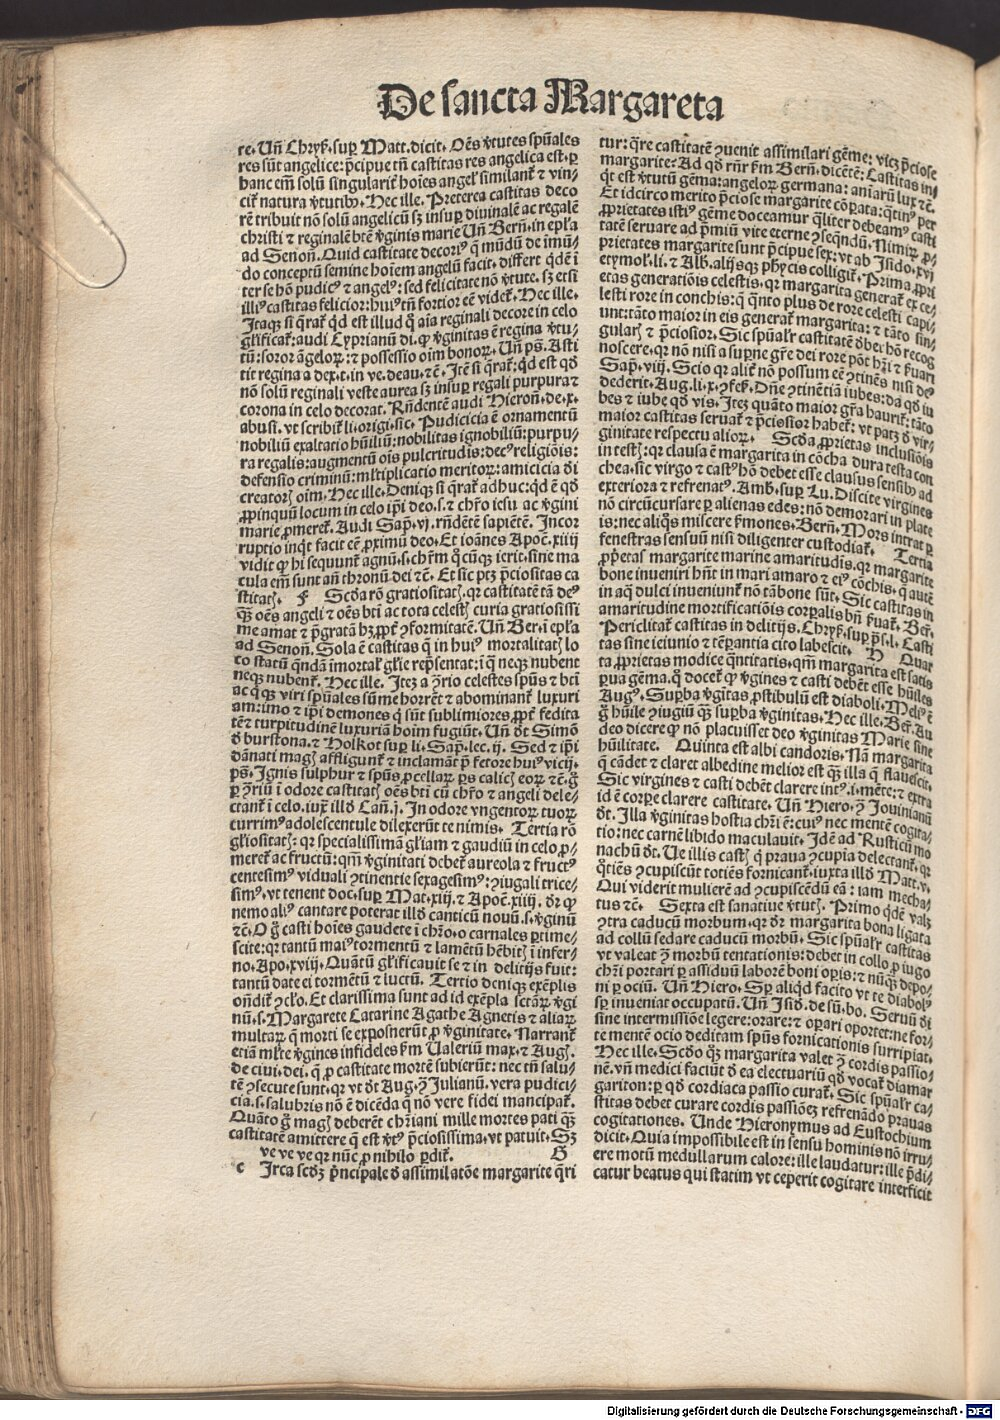 De sancta Margareta
re. Uñ Chryẜ. suꝑ Matt. dicit. Oẽs ṽtutes spũales
res sũt angelice: p̃cipue tñ castitas res angelica est. ꝑ
hanc em̃ solũ singularit̃ hoĩes angeł similant̃ ⁊ vin-
cit̃ natura ṽtutibꝰ. Hec ille. Preterea castitas deco
rẽ tribuit nõ solũ angelicũ sꝫ insuꝑ diuinalẽ ac regalẽ
christi ⁊ reginalẽ btẽ ṽginis marie Uñ Berñ. in ep̃la
ad Señoñ. Quid castitate decoriꝰ q̃ mũdũ de imũ-
do conceptũ semine hoĩem angelũ facit. differt q̃dẽ ĩ
ter se hõ pudicꝰ ⁊ angelꝰ: sed felicitate nõ ṽtute. sꝫ etsi
illiꝰ castitas felicior: huiꝰ tñ fortior eẽ videt̃. Hec ille.
Itaqꝫ si q̃rat̃ q̃d est illud q̃ aĩa reginali decore in celo
gł̃ificat̃: audi Cyprianũ di. ꝙ ṽginitas ẽ regina ṽtu-
tũ: soror ãgeloꝝ: ⁊ possessio oĩm bonoꝝ. Uñ ps̃. Asti
tit regina a dex. t. in ve. deau. ⁊c̃. Itẽ si q̃rat̃: q̃d est qđ
nõ solũ reginali veste aurea sꝫ insuꝑ regali purpura ⁊
corona in celo decorat̃. Rñdentẽ audi Hieroñ. de. x.
abusi. vt scribit̃ li. origi. sic. Pudicicia ẽ ornamentũ
nobiliũ exaltatio hũiliũ: nobilitas ignobiliũ: purpu-
ra regalis: augmentũ oĩs pulcritudĩs: decꝰ religiõis:
defensio criminũ: mł̃tiplicatio meritoꝝ: amicicia đi
creatorꝫ oĩm. Hec ille. Deniqꝫ si q̃rat̃ adhuc: q̃d ẽ qđ
ꝓpinquũ locum in celo ip̃i deo. s. ⁊ chr̃o iesu ac ṽgini
marie ꝓmeret̃. Audi Sap̃. vj. rñdẽtẽ sapiẽtẽ. Incor
ruptio inq̃t facit eẽ ꝓximũ deo. Et ioãnes Apoc̃. xiiij
vidit ꝙ hi sequunt̃ agnũ. s. chr̃m q̃cũqꝫ ierit. sine ma
cula em̃ sunt añ thronũ dei ⁊c̃. Et sic ptꝫ p̃ciositas ca
stitatꝭ. F Scđa rõ gratiositatꝭ. qꝛ castitatẽ tã deꝰ
qꝫ oẽs angeli ⁊ oẽs bti ac tota celestꝭ curia gratiosissi
me amat ⁊ p̃gratã hꝫ ꝓpt̃ ꝯformitatẽ. Uñ Ber. ĩ ep̃la
ad Señoñ. Sola ẽ castitas q̃ in huiꝰ mortalitatꝭ lo
co statũ q̃ndã ĩmortał gł̃ie rep̃sentat: ĩ q̃ neqꝫ nubent
neqꝫ nubent̃. Hec ille. Itez a ꝯ̃rio celestes spũs ⁊ bti
ac qꝫqꝫ viri spũales sũme horrẽt ⁊ abominant̃ luxuri
am: imo ⁊ ip̃i demones q̃ sũt sublimiores ꝓpt̃ fedita
tẽ ⁊ turpitudinẽ luxuriã hoĩm fugiũt. Uñ đt Simõ
đ burstona. ⁊ Holkot suꝑ li. Sap̃. lec. ij. Sed ⁊ ip̃i
dãnati magꝭ affligunt̃ ⁊ inclamãt p̃ fetore huiꝰ vicij.
ps̃. Ignis sulphur ⁊ spũs ꝓcellaꝝ ps̃ calicꝭ eoꝝ ⁊c̃. g̃
ꝑ ꝯ̃riũ ĩ odore castitatꝭ oẽs bti cũ chr̃o ⁊ angeli dele-
ctant̃ ĩ celo. iux̃ illđ Cañ. j. In odore vngentoꝝ tuoꝝ
currimꝰ adolescentule dilexerũt te nimis. Tertia rõ
gł̃iositatꝭ: qꝛ specialissimã gł̃iam ⁊ gaudiũ in celo ꝓ-
meret̃ ac fructũ: qm̃ ṽginitati debet̃ aureola ⁊ fructꝰ
centesimꝰ viduali ꝯtinentie sexagesimꝰ: ꝯiugali trice-
simꝰ. vt tenent doc. suꝑ Mat. xiij. ⁊ Apoc̃. xiiij. đr ꝙ
nemo aliꝰ cantare poterat illđ canticũ nouũ. s. ṽginũ
⁊c̃. O g̃ casti hoĩes gaudete ĩ chr̃o. o carnales ꝑtime-
scite: qꝛ tantũ maiꝰ tormentũ ⁊ lamẽtũ hẽbitꝭ ĩ infer-
no. Apo. xviij. Quãtũ gł̃ificauit se ⁊ in delitijs fuit:
tantũ date ei tormẽtũ ⁊ luctũ. Tertio deniqꝫ exẽplis
oñdit̃ ꝯclo. Et clarissima sunt ad id exẽpla sctãꝝ ṽgi
nũ. s. Margarete Catarine Agathe Agnetis ⁊ aliaꝝ
multaꝝ q̃ morti se exposnerũt ꝓ ṽginitate. Narrant̃
etiã młte ṽgines infideles ẜm Ualeriũ max. ⁊ Augꝭ.
de ciui. dei. q̃ ꝓ castitate mortẽ subierũt: nec tñ salu-
tẽ ꝯsecute sunt. qꝛ vt đt Aug. ꝯ̃ Julianũ. vera pudici-
cia. s. salubris nõ ẽ dicẽda q̃ nõ vere fidei mancipat̃.
Quãto g̃ magꝭ deberẽt chr̃iani mille mortes pati qꝫ
castitatẽ amittere q̃ est ṽtꝰ p̃ciosissima. vt patuit. Sꝫ
ve ve ve qꝛ nũc ꝓ nihilo ꝑdit̃. G
c Irca scđꝫ p̃ncipale đ assimilatõe margarite q̃ri
tur: q̃re castitatẽ ꝯuenit assimilari gẽme: vicꝫ p̃ciose
margarite? Ad qđ rñr ẜm Berñ. dicẽtẽ: Castitas in-
q̃t est ṽtutũ gẽma: angeloꝝ germana: aniãrũ lux ⁊c̃.
Et idcirco merito p̃ciose margarite cõꝑata: q̃tinꝰ per
ꝓprietates istiꝰ gẽme doceamur q̃liter debeamꝰ casti
tatẽ seruare ad p̃miũ vite eterne ꝯseqñdũ. Nimiꝝ ꝓ-
prietates margarite sunt p̃cipue sex: vt ab Isido. xvj
etymoł. li. ⁊ Alb. alijsqꝫ phycis colligit̃. Prima ꝓpri
etas generatiõis celestis. qꝛ margarita generat̃ ex ce-
lesti rore in conchis: q̃ q̃nto plus de rore celesti capi-
unt: tãto maior in eis generat̃ margarita: ⁊ tãto sin-
gularꝭ ⁊ p̃ciosior. Sic spũalr̃ castitatẽ đbei hõ recog
noscere. qꝛ nõ nisi a superne gr̃e dei rore põt hr̃i ⁊ ẜuari
Sap̃. viij. Scio qꝛ alit̃ nõ possum eẽ ꝯtinẽs nisi deꝰ
dederit. Aug. li. x. ꝯfes̃. Dñe ꝯtinẽtiã iubes: da qđ iu
bes ⁊ iube qđ vis. Itez quãto maior gr̃a haurit̃: tãto
maior castitas seruat̃ ⁊ p̃ciosior habet̃: vt patꝫ đ vir-
ginitate respectu alioꝝ. Scđa ꝓprietas inclusiõis
in testꝭ: qꝛ clausa ẽ margarita in cõcha dura testa con
chea. sic virgo ⁊ castꝰ hõ debet esse clausus sensibꝰ ad
exteriora ⁊ refrenatꝰ. Amb. suꝑ Lu. Discite virgines
nõ circũcursare ꝑ alienas edes: nõ demorari in plate
is: nec aliq̃s miscere ẜmones. Berñ. Mors intrat ꝑ
fenestras sensuũ nisi diligenter custodiat̃. Tertia
ꝓp̃etas margarite marine amaritudĩs. qꝛ margarite
bone inueniri hñt in mari amaro ⁊ eiꝰ cõchis. q̃ autẽ
in aq̃ dulci inueniunt̃ nõ tã bone sũt. Sic castitas in
amaritudine mortificatiõis corꝑalis bñ ẜuat̃. Ber̃.
Periclitat̃ castitas in delitijs. Chryẜ. suꝑ ps̃. l. Casti
tas sine ieiunio ⁊ tẽꝑantia cito labescit. H Quar
ta ꝓprietas modice q̃ntitatis. qm̃ margarita est satis
ꝑua gẽma. q̃ docet̃ ꝙ ṽgines ⁊ casti debẽt esse hũiles
Augꝰ. Suꝑba ṽgĩtas ꝓstibulũ est diaboli. Meliꝰ ẽ
g̃ hũile ꝯiugiũ qꝫ suꝑba ṽginitas. Hec ille. Ber̃. Au
deo dicere ꝙ nõ placuisset deo ṽginitas Marie sine
hũilitate. Quinta est albi candoris. Nã margarita
q̃ cãdet ⁊ claret albedine melior est qꝫ illa q̃ flauescit.
Sic virgines ⁊ casti debẽt clarere intꝰ. i. mẽte: ⁊ extra
id ẽ corꝑe clarere castitate. Uñ Hiero. ꝯ̃ Jouinianũ
đt. Illa ṽginitas hostia chr̃i ẽ: cuiꝰ nec mentẽ cogita-
tio: nec carnẽ libido maculauit. Idẽ ad Rusticũ mo
nachũ đt. Ue illis castꝭ q̃ praua ꝯcupia delectant̃. qꝛ
q̃tiẽs ꝯcupiscũt totiẽs fornicant̃. iuxta illđ Matt. v.
Qui viderit mulierẽ ad ꝯcupiscẽdũ eã: iam mecha-
tus ⁊c̃. Sexta est sanatiue ṽtutꝭ. Primo q̃dẽ valꝫ
ꝯtra caducũ morbum. qꝛ đr margarita bona ligata
ad collũ sedare caducũ morbũ. Sic spũalr̃ castitas
vt valeat ꝯ̃ morbũ tentationis: debet in collo ꝓ iugo
chr̃i portari ꝑ assiduũ laborẽ boni oꝑis: ⁊ nũqꝫ depo-
ni ꝑ ociũ. Uñ Hiero. Sꝑ aliq̃d facito vt te diabolꝰ
sꝑ inueniat occupatũ. Uñ Isiđ. de sũ. bo. Seruũ đi
sine intermissiõe legere: orare: ⁊ oꝑari oportet: ne for-
te mentẽ ocio deditam spũs fornicationis surripiat.
Hec ille. Scđo qꝫ margarita valet ꝯ̃ cordis passio-
nẽ. vñ medici faciũt đ ea electuariũ qđ vocat̃ diamar
gariton: ꝑ qđ cordiaca passio curat̃. Sic spũalr̃ ca-
stitas debet curare cordis passiõez refrenãdo prauas
cogitationes. Unde Hieronymus ad Eustochium
dicit. Quia impossibile est in sensu hominis nõ irru-
ere motũ medullarum calore: ille laudatur: ille p̃di-
catur beatus qui statim vt ceperit cogitare interficit
Digitalisierung gefördert durch die Deutsche Forschungsgemeinschaft - DFG